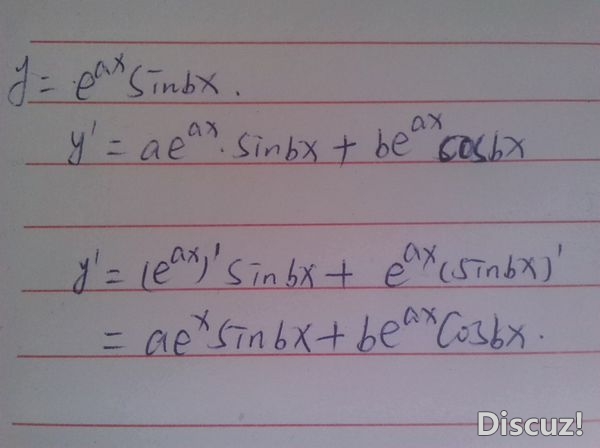 y = e^{ax} sinbx.
y' = ae^{ax}·sinbx + be^{ax} cosbx
y' = (e^{ax})' sinbx + e^{ax}(sinbx)'
= ae^{x} sinbx + be^{ax} Cosbx.
Discuz!